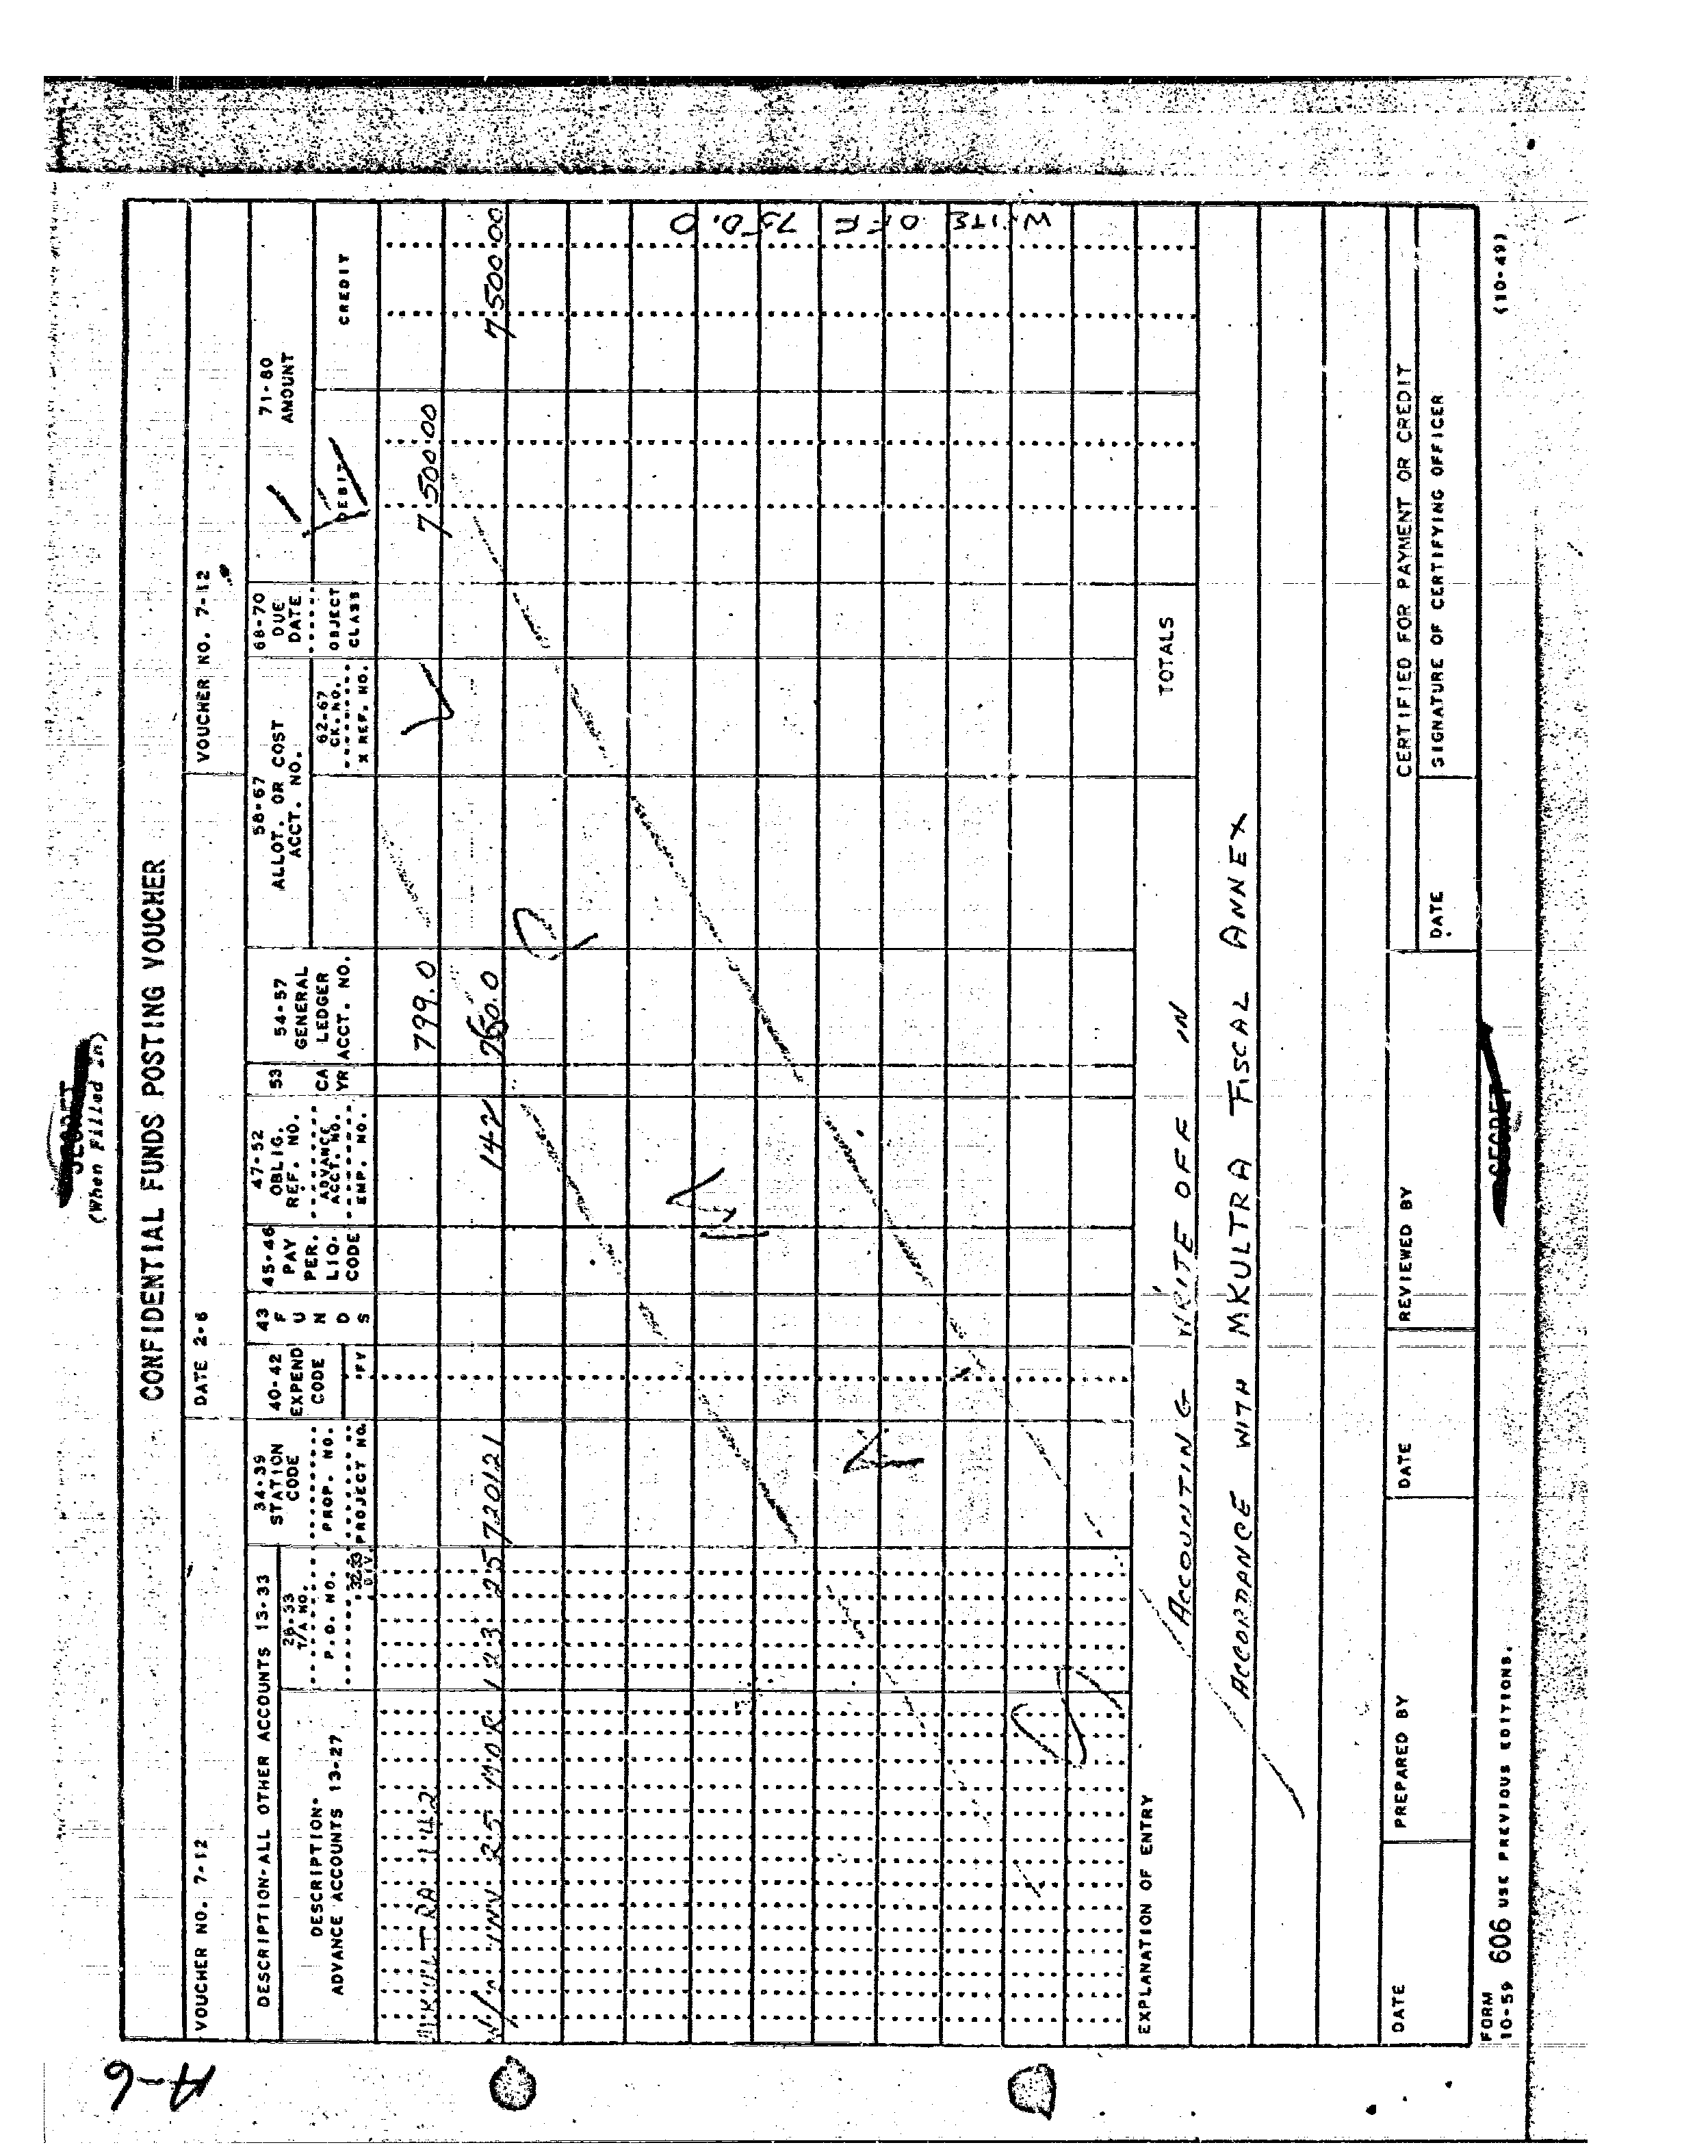 A-6
SECRET
(When Filled In)
CONFIDENTIAL FUNDS POSTING VOUCHER
VOUCHER NO. 7-12
DATE 2-6
VOUCHER NO. 7-12
DESCRIPTION-ALL OTHER ACCOUNTS 13-33
DESCRIPTION-
ADVANCE ACCOUNTS 13-27
28-33
T/A NO.
P.O. NO.
32-33
DIV
34-39
STATION
CODE
PROP. NO.
PROJECT NO.
40-42
EXPEND
CODE
PFY
43
F
U
N
D
S
45-46
PAY
PER.
LIQ.
CODE
47-52
OBLIG.
REF. NO.
ADVANCE
ACCT. NO.
EMP. NO.
53
CA
YR
54-57
GENERAL
LEDGER
ACCT. NO.
58-67
ALLOT. OR COST
ACCT. NO.
62-67
CK. NO.
X REF. NO.
68-70
DUE
DATE
OBJECT
CLASS
71-80
AMOUNT
DEBIT
CREDIT
MKULTRA 142 799.0 7500.00
INV 25 MOR 123 25 72012 1 142 750.0 7500.00
WRITE OFF 750.0
TOTALS
EXPLANATION OF ENTRY
ACCOUNTING WRITE OFF IN
ACCORDANCE WITH MKULTRA FISCAL ANNEX
CERTIFIED FOR PAYMENT OR CREDIT
DATE
PREPARED BY
DATE
REVIEWED BY
DATE
SIGNATURE OF CERTIFYING OFFICER
FORM
10-59 606 USE PREVIOUS EDITIONS.
SECRET
(10-49)